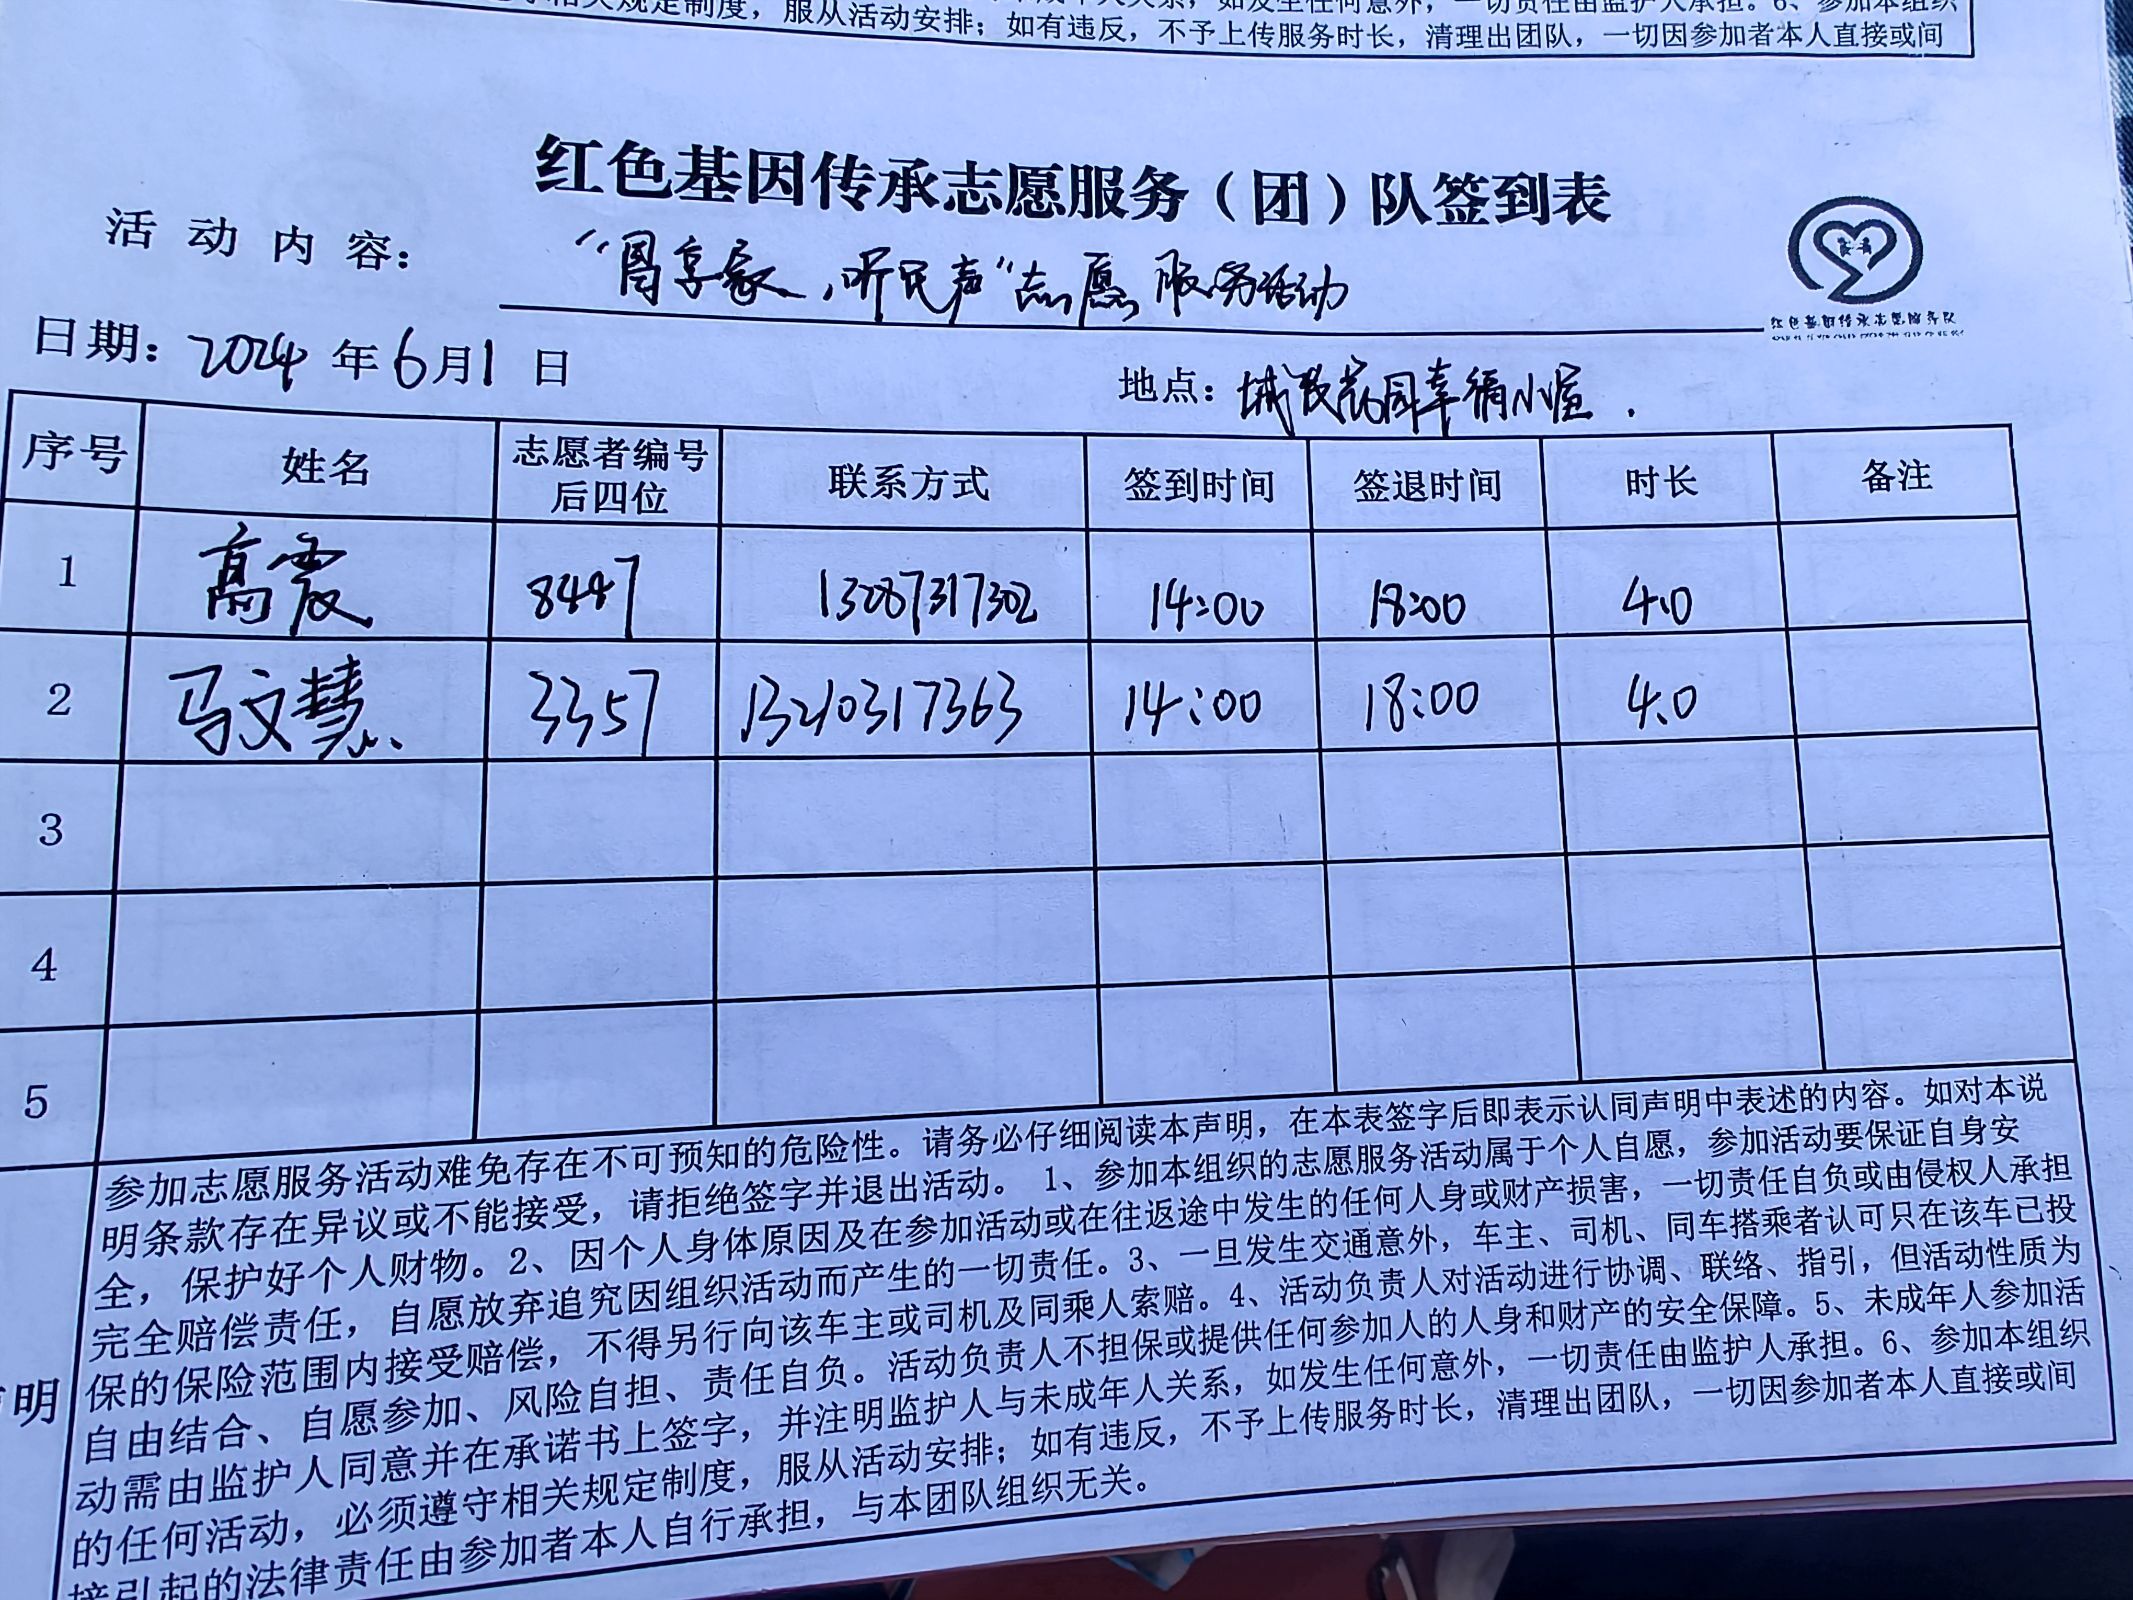 相关规定制度，服从活动安排；如有违反，不予上传服务时长，清理出团队，一切因参加者本人直接或间
红色基因传承志愿服务（团）队签到表
活动内容：“周享家，听民声”志愿服务活动
红色基因传承志愿服务队
日期：2024年6月1日
地点：幸福小
序号 姓名 志愿者编号后四位 联系方式 签到时间 签退时间 时长 备注
1 高震 8447 13287317302 14:00 18:00 4.0
2 马文慧 3357 13210317363 14:00 18:00 4.0
3
4
5
明
参加志愿服务活动难免存在不可预知的危险性。请务必仔细阅读本声明，在本表签字后即表示认同声明中表述的内容。如对本说
明条款存在异议或不能接受，请拒绝签字并退出活动。 1、参加本组织的志愿服务活动属于个人自愿，参加活动要保证自身安
全，保护好个人财物。2、因个人身体原因及在参加活动或在往返途中发生的任何人身或财产损害，一切责任自负或由侵权人承担
完全赔偿责任，自愿放弃追究因组织活动而产生的一切责任。3、一旦发生交通意外，车主、司机、同车搭乘者认可只在该车已投
保的保险范围内接受赔偿，不得另行向该车主或司机及同乘人索赔。4、活动负责人对活动进行协调、联络、指引，但活动性质为
自由结合、自愿参加、风险自担、责任自负。活动负责人不担保或提供任何参加人的人身和财产的安全保障。5、未成年人参加活
动需由监护人同意并在承诺书上签字，并注明监护人与未成年人关系，如发生任何意外，一切责任由监护人承担。6、参加本组织
的任何活动，必须遵守相关规定制度，服从活动安排；如有违反，不予上传服务时长，清理出团队，一切因参加者本人直接或间
接引起的法律责任由参加者本人自行承担，与本团队组织无关。